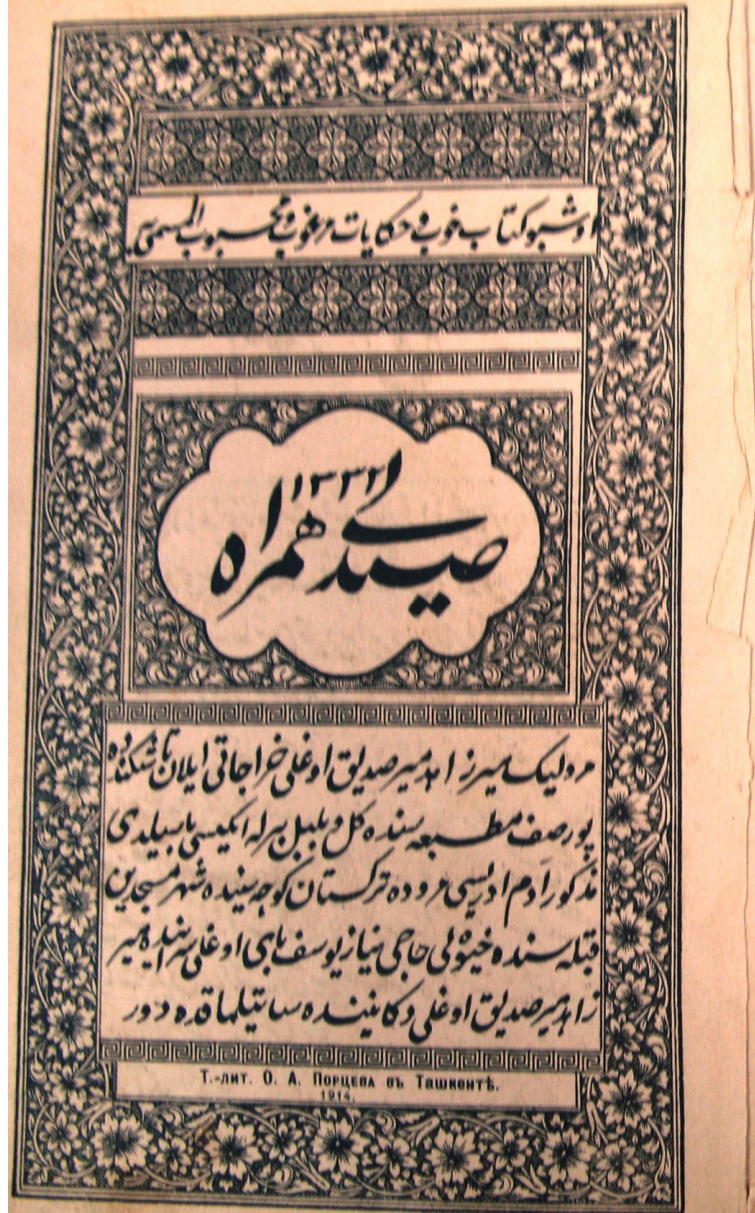 اوشبو كتاب خوب و حكايات مرغوب و محبوب المسمى به
۱۳۳۲
صيدى همراه
مروليك ميرزاهد ميرصديق اوغلى خراجاتى ايلان تاشكندده
پورصف مطبعه سنده كل و بلبل برله ايكيسى باسيلدى
مذكور آدم ادريسى مروده تركستان كوچه سينده شهر مسجدين
قبله سنده خيوه لى حاجى نياز يوسف باى اوغلى سراينده مير
زاهد ميرصديق اوغلى دكانينده ساتيلماقده دور
Т.-лит. О. А. Порцева въ Ташкентѣ.
1914.